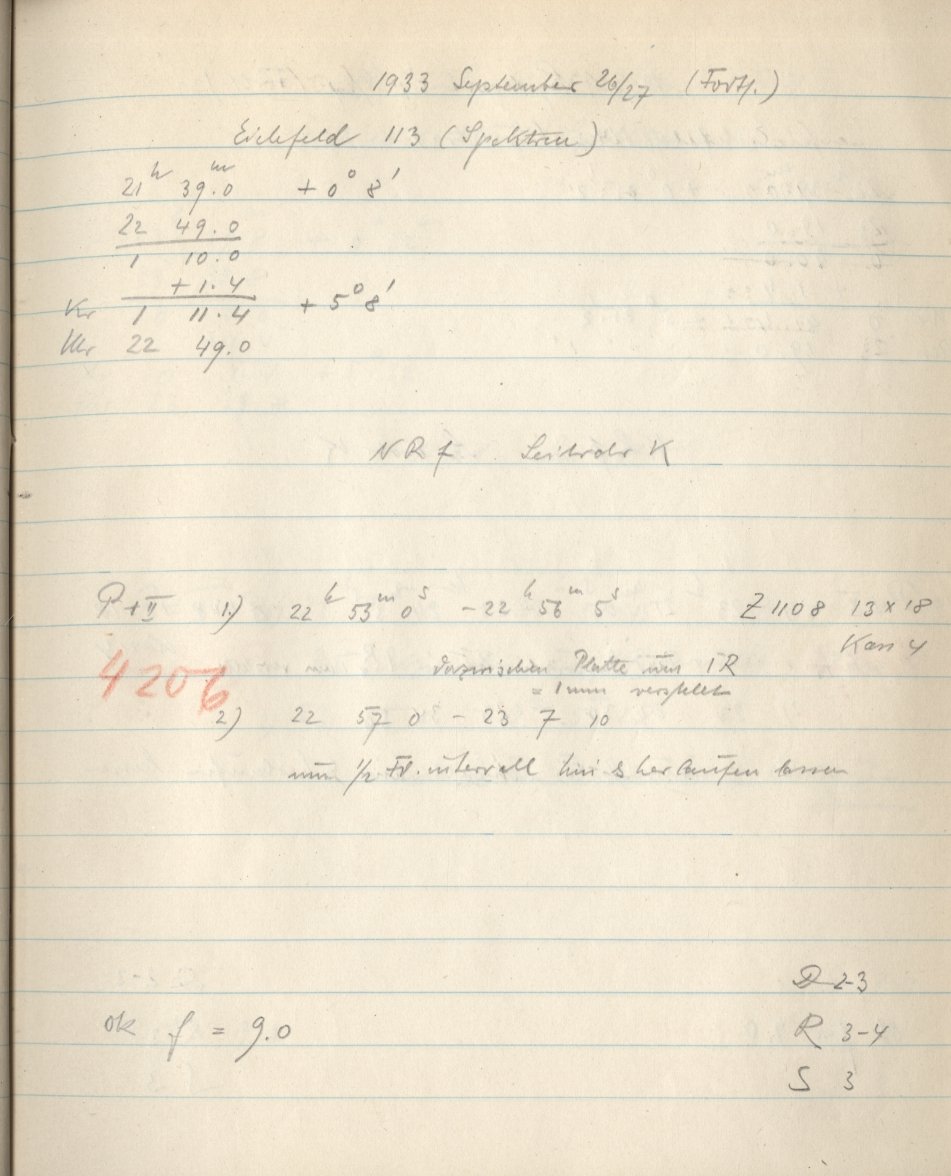 1933 September 26/27 (Forts.)
Eichfeld 113 (Spektren)
21h 39m.0 + 0° 8'
22 49.0
1 10.0
+ 1.4
Kr 1 11.4 + 5° 8'
Uhr 22 49.0
N R f Leitrohr K
P + II 1.) 22h 53m 0s - 22h 56m 5s Z 1108 13 x 18
Kass 4
4206
dazwischen Platte um 1 R
= 1 mm verstellt
2) 22 57 0 - 23 7 10
um 1/2 Fd. intervall hin & her laufen lassen
D 2-3
ok f = 9.0 R 3-4
S 3